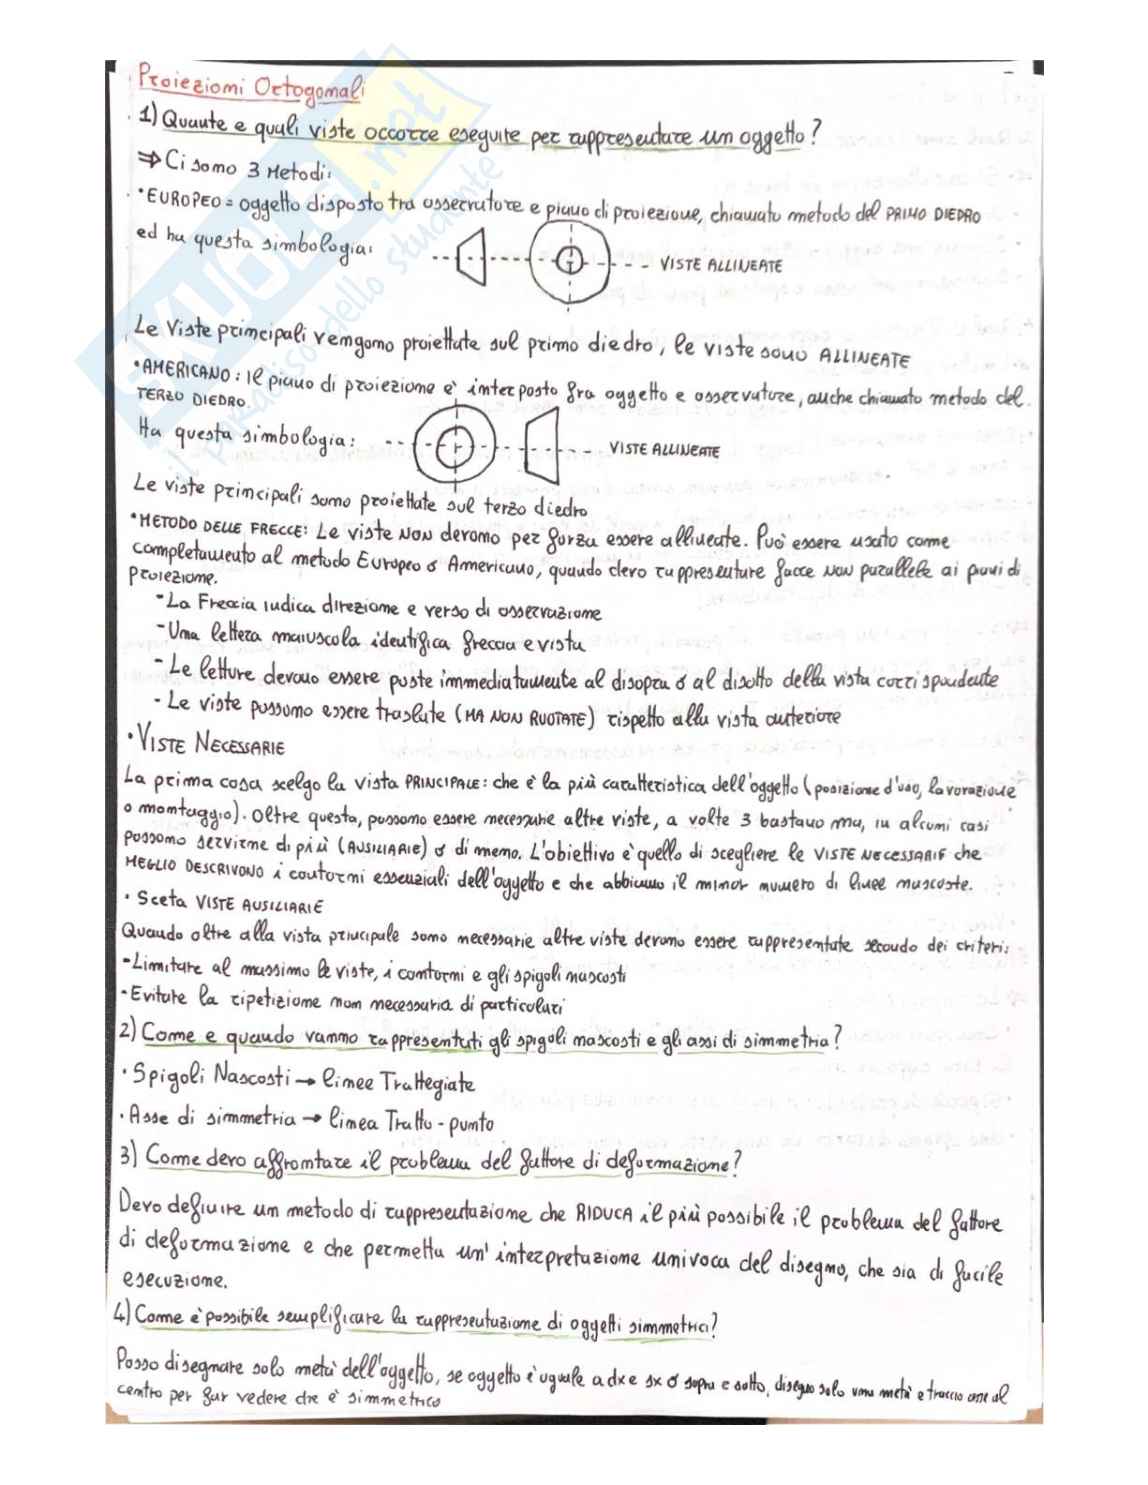 Proiezioni Ortogonali
1) Quante e quali viste occorre eseguire per rappresentare un oggetto?
⇒ Ci sono 3 Metodi:
• EUROPEO = oggetto disposto tra osservatore e piano di proiezione, chiamato metodo del PRIMO DIEDRO
ed ha questa simbologia:
VISTE ALLINEATE
Le Viste principali vengono proiettate sul primo diedro, le viste sono ALLINEATE
• AMERICANO: Il piano di proiezione è interposto fra oggetto e osservatore, anche chiamato metodo del
TERZO DIEDRO.
Ha questa simbologia:
VISTE ALLINEATE
Le viste principali sono proiettate sul terzo diedro
• METODO DELLE FRECCE: Le viste NON devono per forza essere allineate. Può essere usato come
completamento al metodo Europeo o Americano, quando devo rappresentare facce NON parallele ai piani di
proiezione.
- La Freccia indica direzione e verso di osservazione
- Una lettera maiuscola identifica freccia e vista
- Le letture devono essere poste immediatamente al disopra o al disotto della vista corrispondente
- Le viste possono essere traslate (MA NON RUOTATE) rispetto alla vista anteriore
• VISTE NECESSARIE
La prima cosa scelgo la vista PRINCIPALE: che è la più caratteristica dell'oggetto (posizione d'uso, lavorazione
o montaggio). Oltre questa, possono essere necessarie altre viste, a volte 3 bastano ma, in alcuni casi
possono servirne di più (AUSILIARIE) o di meno. L'obiettivo è quello di scegliere le VISTE NECESSARIE che
MEGLIO DESCRIVONO i contorni essenziali dell'oggetto e che abbiano il minor numero di linee nascoste.
• Sceta VISTE AUSILIARIE
Quando oltre alla vista principale sono necessarie altre viste devono essere rappresentate secondo dei criteri:
- Limitare al massimo le viste, i contorni e gli spigoli nascosti
- Evitare la ripetizione non necessaria di particolari
2) Come e quando vanno rappresentati gli spigoli nascosti e gli assi di simmetria?
• Spigoli Nascosti → linee Trattegiate
• Asse di simmetria → linea Tratto - punto
3) Come devo affrontare il problema del fattore di deformazione?
Devo definire un metodo di rappresentazione che RIDUCA il più possibile il problema del fattore
di deformazione e che permetta un' interpretazione univoca del disegno, che sia di facile
esecuzione.
4) Come è possibile semplificare la rappresentazione di oggetti simmetrici?
Posso disegnare solo metà dell'oggetto, se oggetto è uguale a dx e sx o sopra e sotto, disegno solo una metà e traccio al
centro per far vedere che è simmetrico
SKUOLA.net
il paradiso dello studente